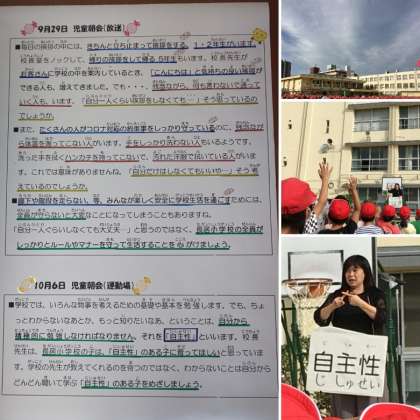 9月29日 児童朝会(放送)
■毎日の挨拶の中には、きちんと立ち止まって挨拶する、1・2年生がいます。
校長室をノックして、帰りの挨拶をして帰る5年生もいます。校長先生が
お客さんに学校の中を案内しているとき、「こんにちは」と気持ちの良い挨拶が
できる人も、増えてきました。でも・・・、残念ながら、何も言わないで通って
いく人も、います。「自分一人ぐらい挨拶をしなくても…」そう思っているの
でしょうか。
■また、たくさんの人がコロナ対策の約束事をしっかり守っているのに、残念なが
ら体温を測ってこない人がいます。手をしっかり洗わない人もいるようです。
洗った手を拭くハンカチを持ってこないで、汚れた洋服で拭いている人がいま
す。これでは意味がありませんね。「自分だけはしなくてもいいや…」そう考
えているのでしょうか。
■廊下や階段を走らない、等、みんなが楽しく安全に学校生活を過ごすためには、
全員が守らないと大変なことになってしまうこともありますね。
「自分一人ぐらいしなくても大丈夫…」と思うのではなく、長居小学校の全員が
しっかりとルールやマナーを守って生活することを心がけましょう。
10月6日 児童朝会(運動場)
■学校では、いろんな物事を考えるための基礎や基本を勉強します。でも、ちょ
っとわからないなあとか、もっと知りたいなあ、ということは、自分から
積極的に勉強しなければなりません。それを「自主性」といいます。校長
先生は、長居小学校の子は、「自主性」のある子に育ってほしいと思っていま
す。学校の先生が教えてくれるのを待つのではなく、わからないことは自分から
どんどん聞いて学ぶ「自主性」のある子をめざしましょう。
自主性
じしゅせい